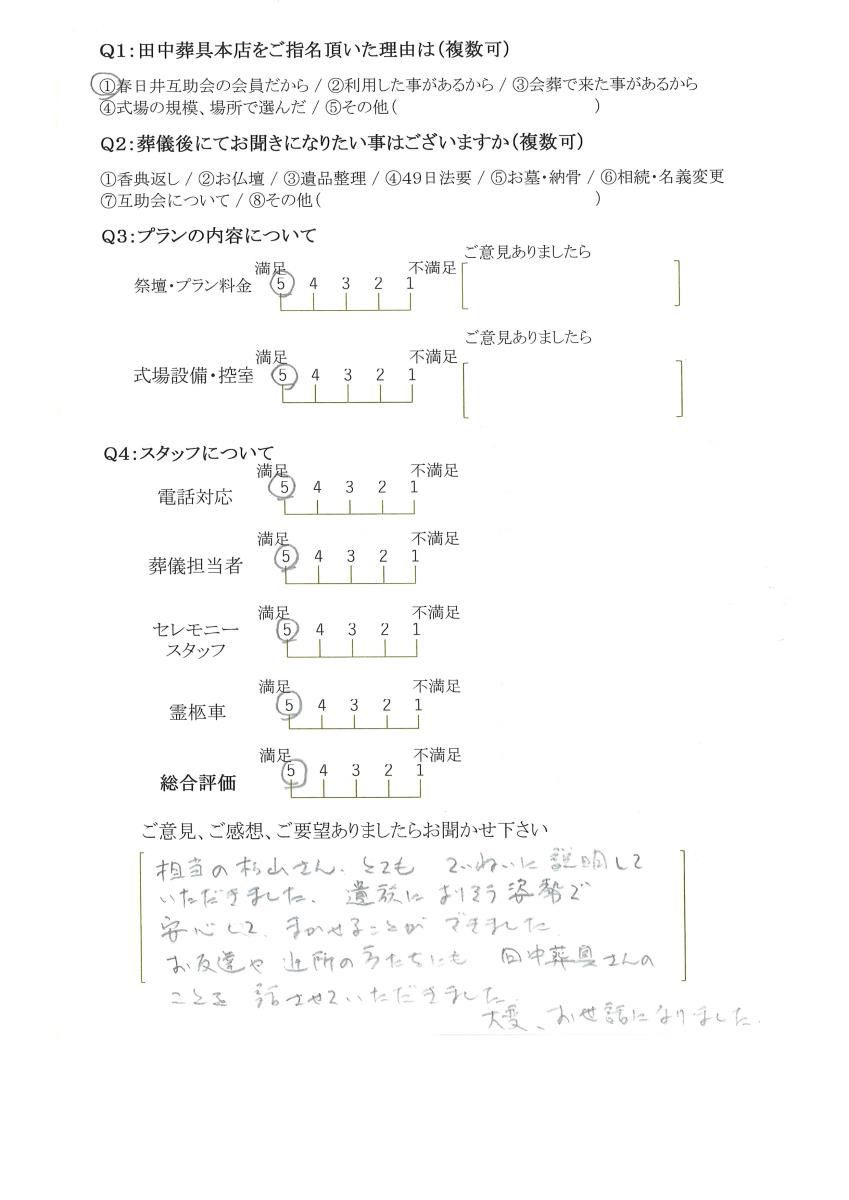 Q1:田中葬具本店をご指名頂いた理由は(複数可)
①春日井互助会の会員だから / ②利用した事があるから / ③会葬で来た事があるから
④式場の規模、場所で選んだ / ⑤その他( )
Q2:葬儀後にてお聞きになりたい事はございますか(複数可)
①香典返し / ②お仏壇 / ③遺品整理 / ④49日法要 / ⑤お墓・納骨 / ⑥相続・名義変更
⑦互助会について / ⑧その他( )
Q3:プランの内容について
ご意見ありましたら
満足 不満足
祭壇・プラン料金 5 4 3 2 1
ご意見ありましたら
満足 不満足
式場設備・控室 5 4 3 2 1
Q4:スタッフについて
満足 不満足
電話対応 5 4 3 2 1
満足 不満足
葬儀担当者 5 4 3 2 1
満足 不満足
セレモニー 5 4 3 2 1
スタッフ
満足 不満足
霊柩車 5 4 3 2 1
満足 不満足
総合評価 5 4 3 2 1
ご意見、ご感想、ご要望ありましたらお聞かせ下さい
担当の杉山さん、とても ていねいに 説明して
いただきました。遺族に よりそう姿勢で
安心して、まかせることが できました。
お友達や 近所の方たちにも 田中葬具さんの
ことを 話させていただきました。
大変、お世話になりました。